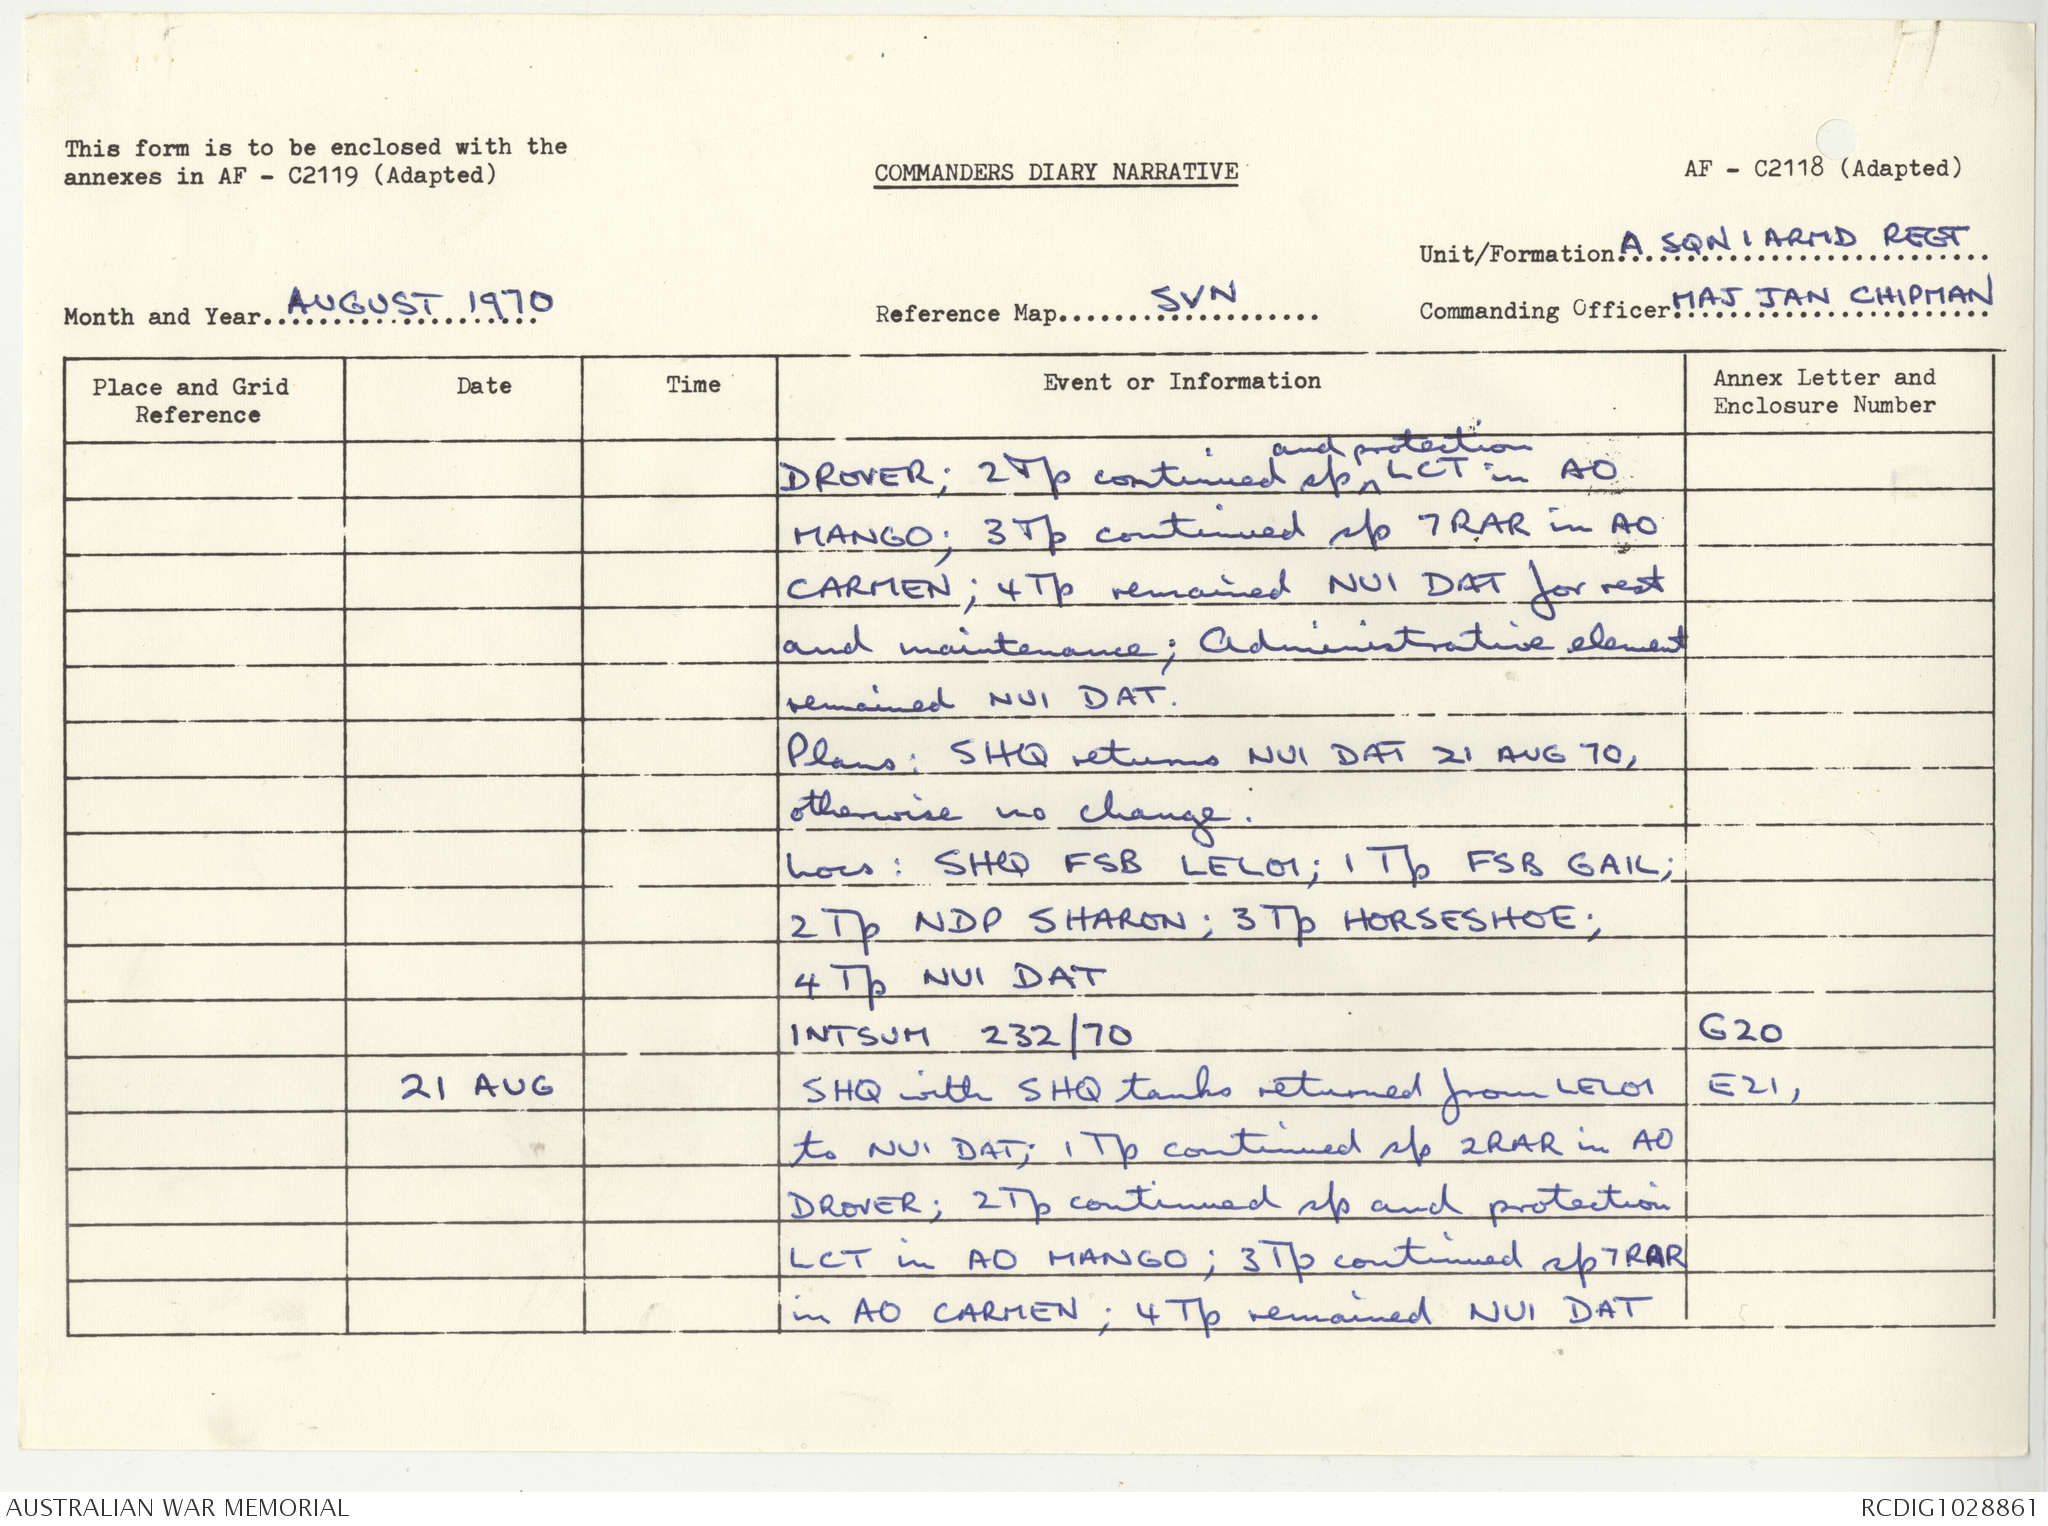 This form is to be enclosed with the
annexes in AF - C2119 (Adapted)
COMMANDERS DIARY NARRATIVE
AF - C2118 (Adapted)
Unit/Formation A SQN 1 ARMD REGT
Month and Year AUGUST 1970
Reference Map SVN
Commanding Officer MAJ JAN CHIPMAN
Place and Grid Reference
Date
Time
Event or Information
Annex Letter and Enclosure Number
and protection
DROVER; 2 Tp continued sp ^ LCT in AO
MANGO; 3 Tp continued sp 7RAR in AO
CARMEN; 4 Tp remained NUI DAT for rest
and maintenance; Administrative element
remained NUI DAT.
Plans: SHQ returns NUI DAT 21 AUG 70,
otherwise no change.
Locs: SHQ FSB LELOI; 1 Tp FSB GAIL;
2 Tp NDP SHARON; 3 Tp HORSESHOE;
4 Tp NUI DAT
INTSUM 232/70 G20
21 AUG SHQ with SHQ tanks returned from LELOI E21,
to NUI DAT; 1 Tp continued sp 2RAR in AO
DROVER; 2 Tp continued sp and protection
LCT in AO MANGO; 3 Tp continued sp 7RAR
in AO CARMEN; 4 Tp remained NUI DAT
AUSTRALIAN WAR MEMORIAL
RCDIG1028861